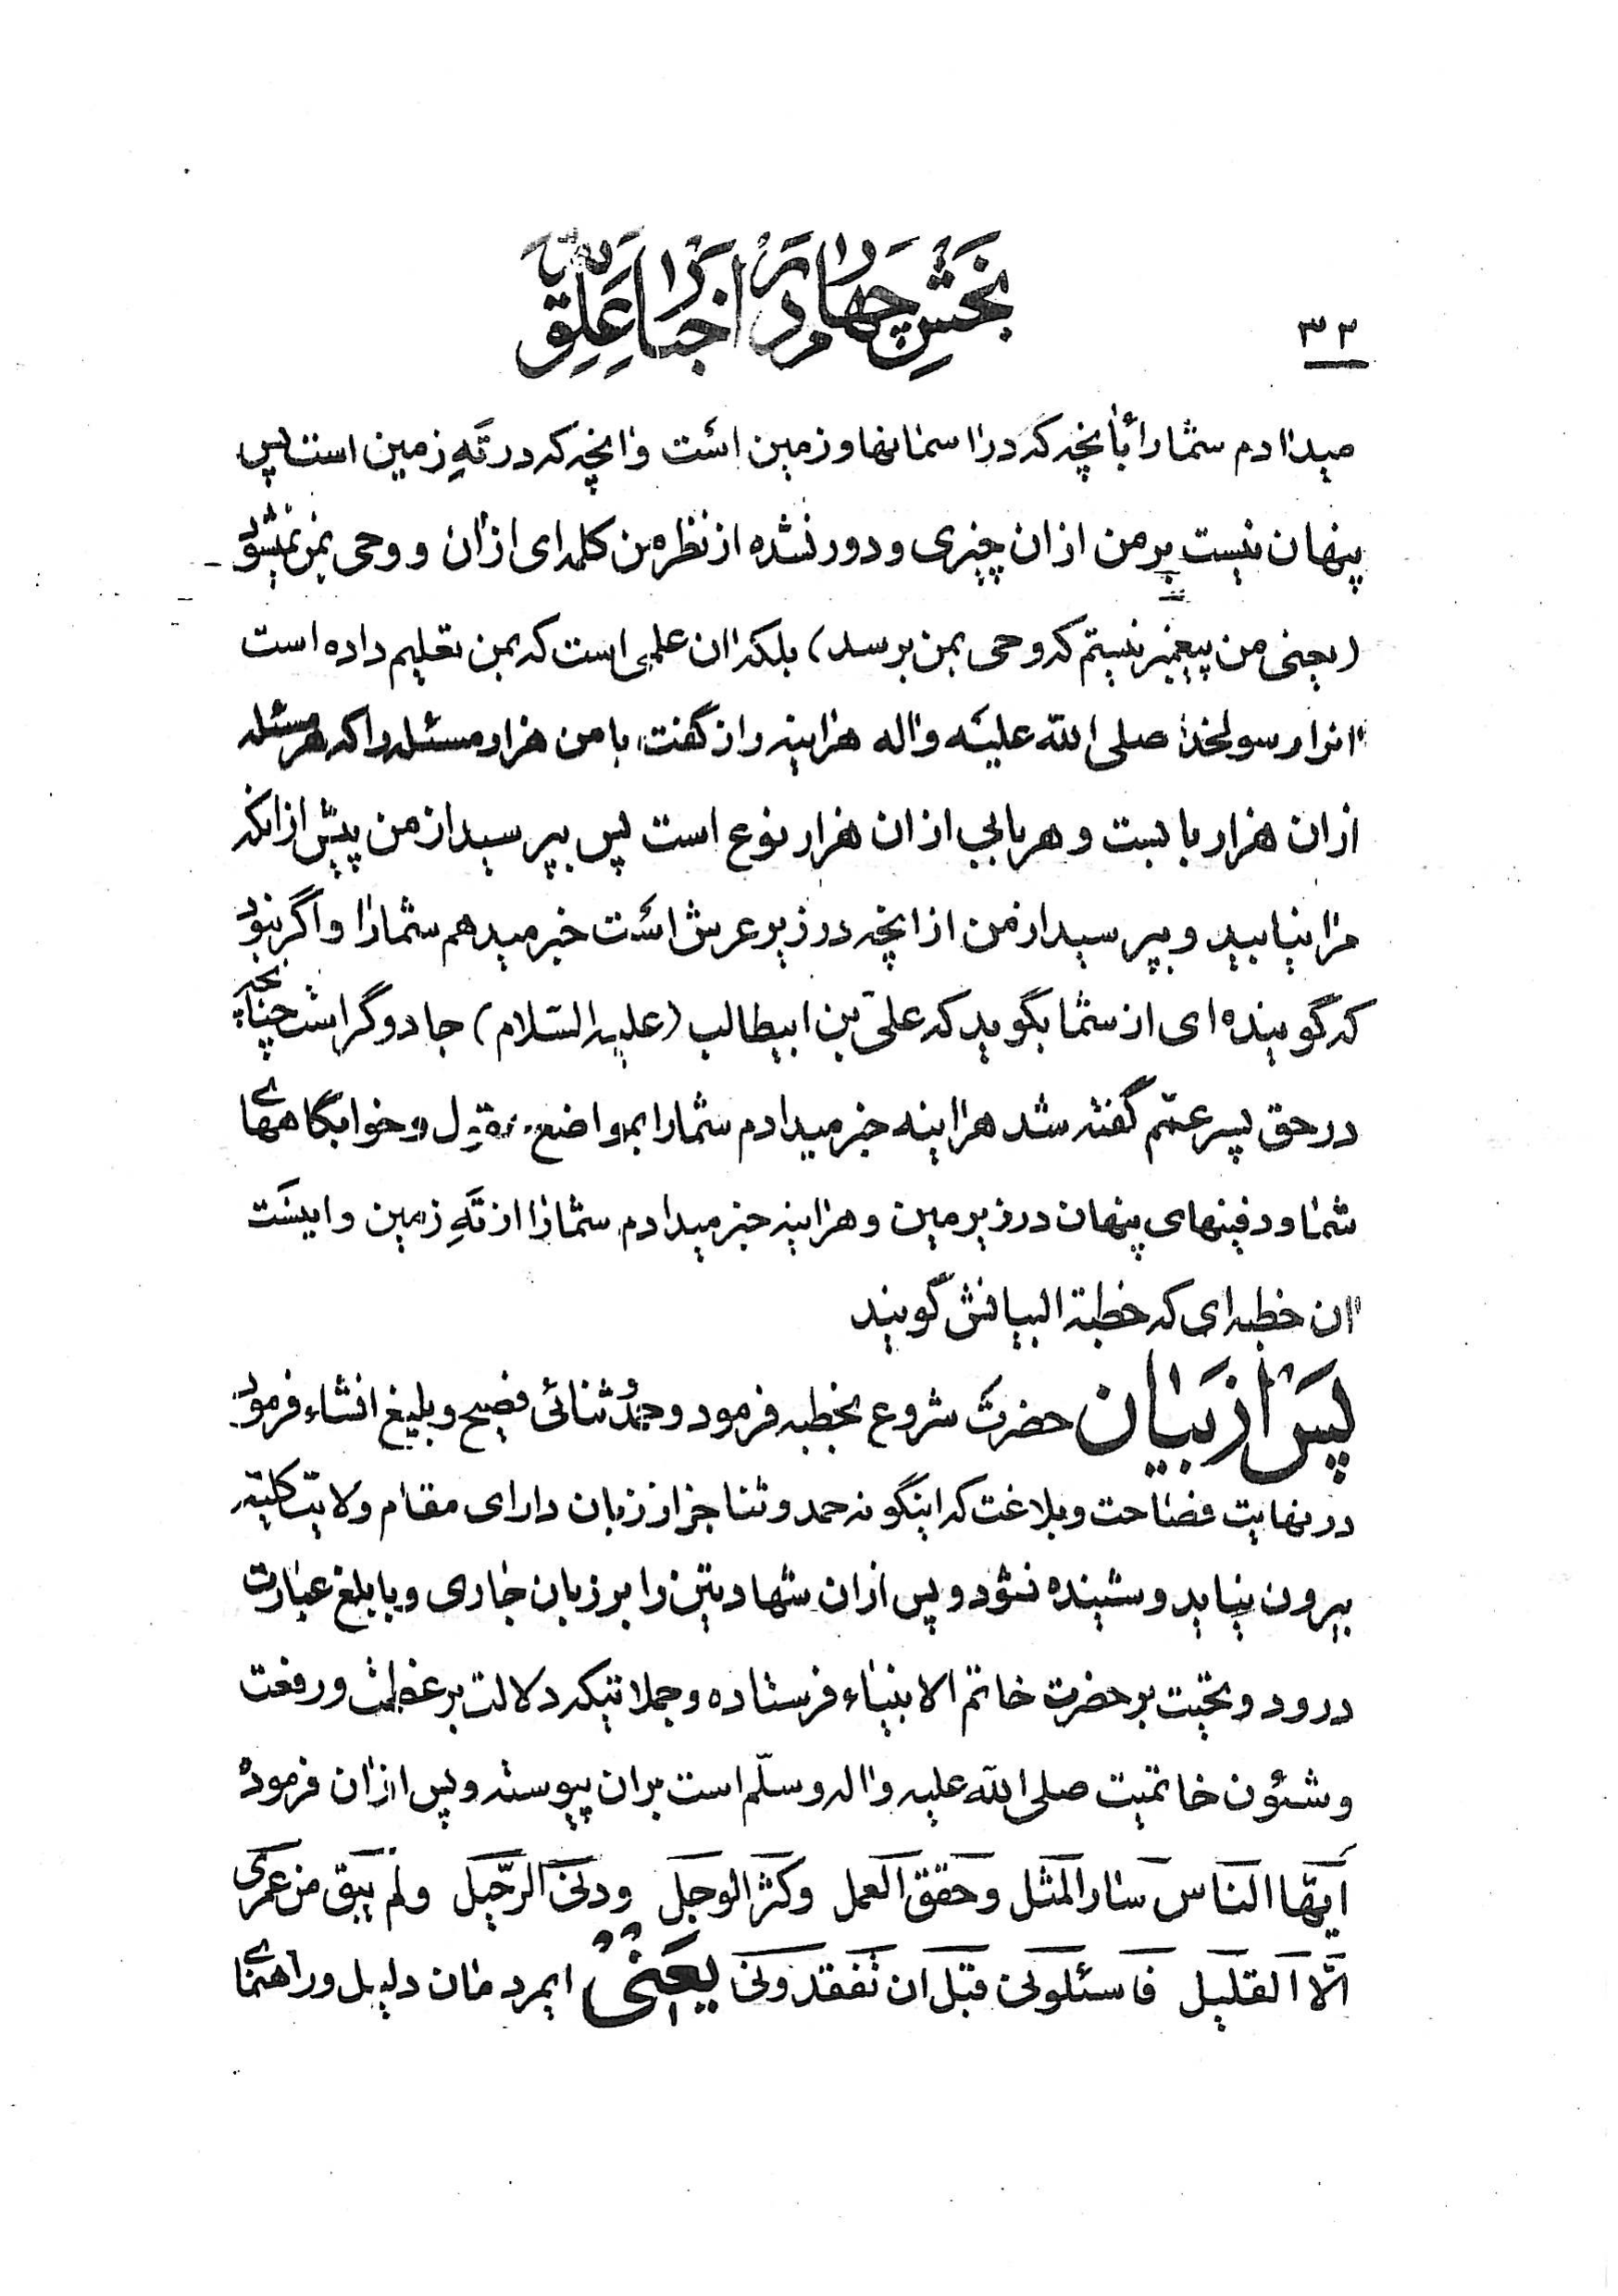 ۳۲
بخش چهارم در اخبار علوی
میدادم شما را بآنچه که در آسمانها و زمین است و آنچه که در تَهِ زمین است پس
پنهان نیست بر من از آن چیزی و دور نشده از نظر من کلمه‌ای از آن و وحی بمن نمیشود
(یعنی من پیغمبر نیستم که وحی بمن برسد) بلکه آن علمی است که بمن تعلیم داده است
آنرا رسولخدا صلی الله علیه و آله هر اینه راز گفت با من هزار مسئله را که هر مسئله
از آن هزار بابست و هر بابی از آن هزار نوع است پس بپرسید از من پیش از آنکه
مرا نیابید و بپرسید از من از آنچه در زیر عرش است خبر میدهم شما را و اگر نبود
که گوینده‌ای از شما بگوید که علی بن ابیطالب (علیه السلام) جادوگر است چنانچه
در حق پسر عمّم گفته شد هر اینه خبر میدادم شما را بمواضع و خوابگاههای
شما و دفینهای پنهان در زیر زمین و هر اینه خبر میدادم شما را از تَهِ زمین و اینست
آن خطبه‌ای که خطبة البیانش گویند
پس از بیان حضرت شروع بخطبه فرمود و حمد و ثنائی فصیح و بلیغ انشاء فرمود
در نهایت فصاحت و بلاغت که اینگونه حمد و ثنا جز از زبان دارای مقام ولایت کلیّه
بیرون نیاید و شنیده نشود و پس از آن شهادتین را بر زبان جاری و با بلغ عبارت
درود و تحیّت بر حضرت خاتم الانبیاء فرستاده و جملاتیکه دلالت بر عظمت و رفعت
و شئون خاتمیّت صلی الله علیه و آله و سلّم است بر آن پیوسته و پس از آن فرموده
اَیُّهَا النّاس سار المَثَل و حقق العمل و کثر الوجل و دنی الرّحیل و لم یبق من عمری
الّا القلیل فاسئلونی قبل ان تفقدونی یعنی ایمردمان دلیل و راهنمای